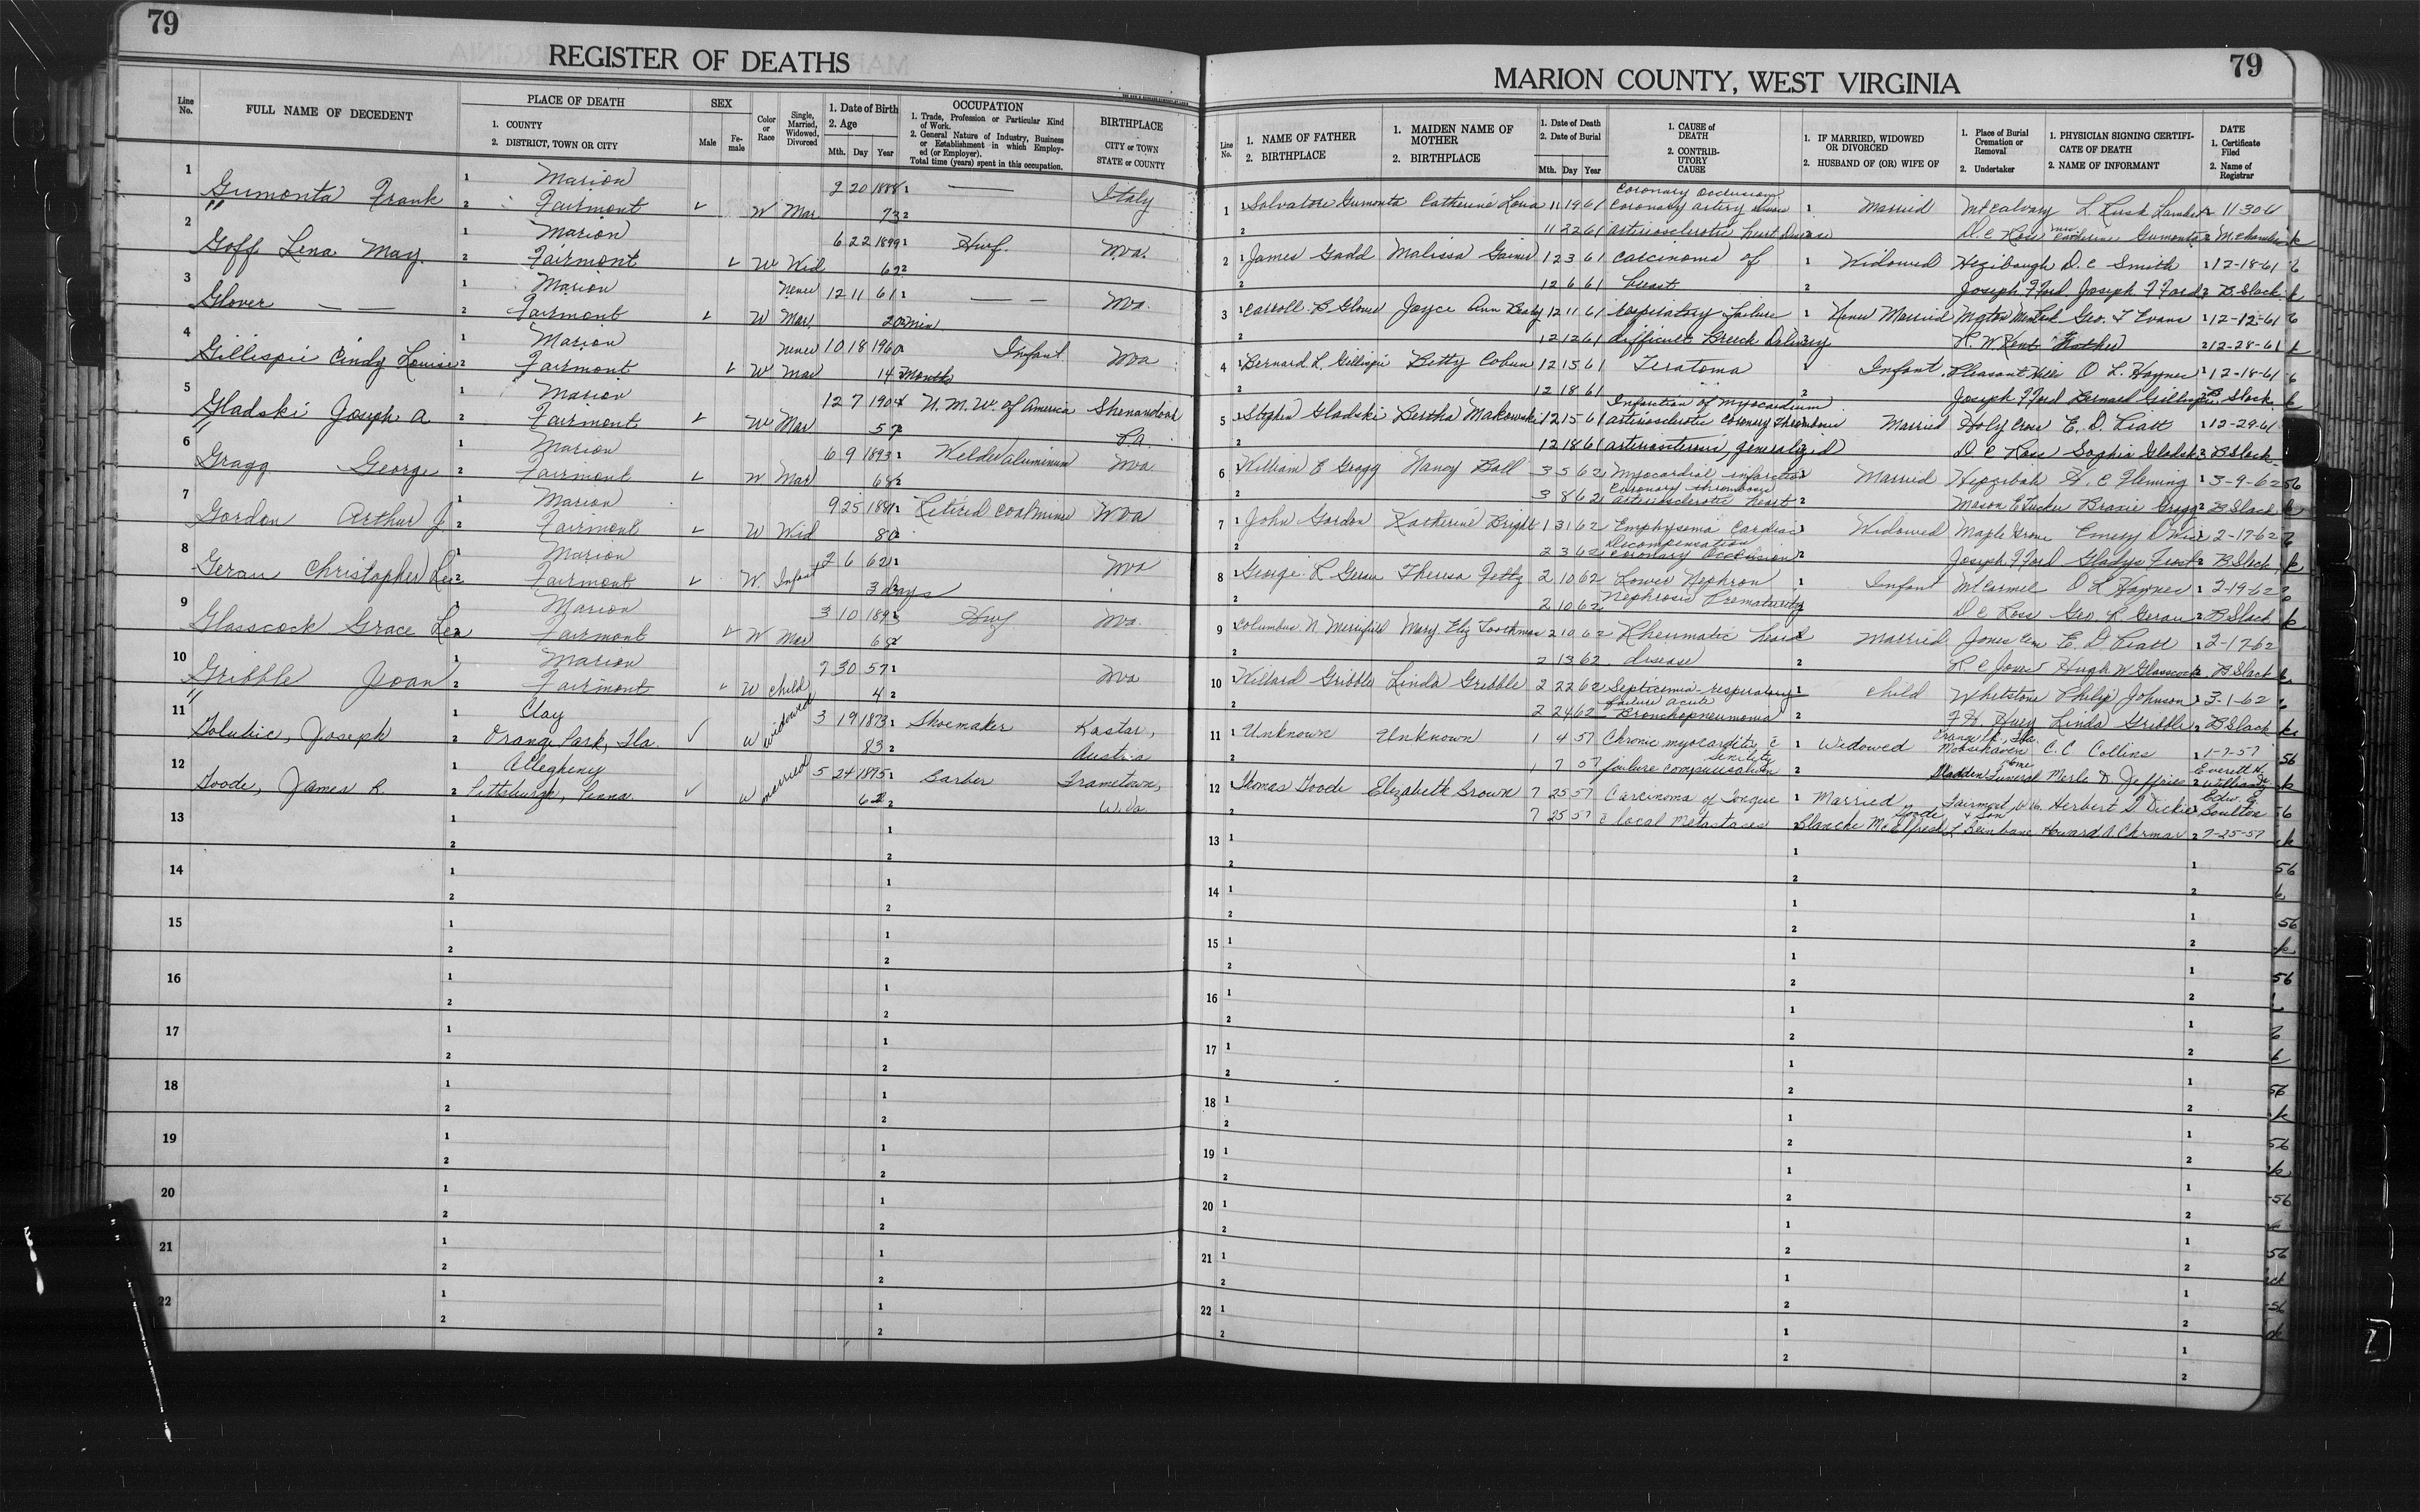 79
REGISTER OF DEATHS
Line No.
FULL NAME OF DECEDENT
PLACE OF DEATH
1. COUNTY
2. DISTRICT, TOWN OR CITY
SEX
Male
Female
Color or Race
Single, Married, Widowed, Divorced
1. Date of Birth
2. Age
Mth. Day Year
OCCUPATION
1. Trade, Profession or Particular Kind of Work.
2. General Nature of Industry, Business or Establishment in which Employed (or Employer).
Total time (years) spent in this occupation.
BIRTHPLACE
CITY or TOWN
STATE or COUNTY
1 Gumonta Frank 1 Marion 2 Fairmont ✓ W Mar 2 20 1888 73 Italy
2 Goff Lena May 1 Marion 2 Fairmont ✓ W Wid 6 22 1899 62 Hwf. Wva.
3 Glover — — 1 Marion 2 Fairmont ✓ W Never Mar. 12 11 61 20 min — — Wva.
4 Gillispie Cindy Louise 1 Marion 2 Fairmont ✓ W Never Mar 10 18 1960 14 Months Infant Wva
5 Gladski Joseph A 1 Marion 2 Fairmont ✓ W Mar 12 7 1904 57 U. M. W. of America Shenandoah Pa.
6 Gragg George 1 Marion 2 Fairmont ✓ W Mar 6 9 1893 68 Welder aluminum Wva
7 Gordon Arthur J. 1 Marion 2 Fairmont ✓ W Wid 9 25 1881 80 Retired Coal miner Wva
8 Gerau Christopher Lee 1 Marion 2 Fairmont ✓ W. Infant 2 6 62 3 days Wva
9 Glasscock Grace Lee 1 Marion 2 Fairmont ✓ W Mar 3 10 1893 68 Hwf Wva.
10 Gribble Joan 1 Marion 2 Fairmont ✓ W child 7 30 57 4 Wva
11 Golubic, Joseph 1 Clay 2 Orange Park, Fla. ✓ W widowed 3 19 1873 83 Shoemaker Kastav, Austria
12 Goode, James R 1 Allegheny 2 Pittsburgh, Penna. ✓ W married 5 24 1895 62 Barber Frametown, W. Va.
13
14
15
16
17
18
19
20
21
22
79
MARION COUNTY, WEST VIRGINIA
Line No.
1. NAME OF FATHER
2. BIRTHPLACE
1. MAIDEN NAME OF MOTHER
2. BIRTHPLACE
1. Date of Death
2. Date of Burial
Mth. Day Year
1. CAUSE of DEATH
2. CONTRIBUTORY CAUSE
1. IF MARRIED, WIDOWED OR DIVORCED
2. HUSBAND OF (OR) WIFE OF
1. Place of Burial Cremation or Removal
2. Undertaker
1. PHYSICIAN SIGNING CERTIFICATE OF DEATH
2. NAME OF INFORMANT
DATE
1. Certificate Filed
2. Name of Registrar
1 Salvatore Gumonta Catherine Lona 11 19 61 Coronary Occlusion Coronary artery disease Married Mt Calvary L. Rush Lambert 11 30 61
11 22 61 arteriosclerotic heart Disease D. C Ross Mrs Catherine Gumonta
2 James Gadd Malissa Gainer 12 3 61 Carcinoma of Widowed Hepzibah D. C Smith 12-18-61
12 6 61 breast Joseph F Ford Joseph F Ford B. Slack
3 Carroll B Glover Joyce Ann 12 11 61 respiratory failure Never Married Geo. T Evans 12-12-61
12 12 61 difficult Breech Delivery R. W. Kent Mother 12-28-61
4 Bernard L. Gillispie Betty Coburn 12 15 61 Teratoma Infant Pleasant Hill O L. Haynes 12-18-61
12 18 61 Joseph F Ford Bernard Gillispie B. Slack
5 Stephen Gladski Bertha Makowski 12 15 61 Infarction of myocardium arteriosclerotic Coronary thrombosis Married Holy Cross E. D. Piatt 12-29-61
12 18 61 arteriosclerosis, generalized D. C Ross Sophia Gladski B Slack
6 William E Gragg Nancy Ball 3 5 62 Myocardial infarction Married Hepzibah H. C Fleming 3-9-62
3 8 62 Coronary thrombosis arteriosclerotic heart Mason E Tucker Braxie Gragg B Slack
7 John Gordon Katherine Bright 1 31 62 Emphysema Cardiac Widowed Maple Grove Emery D 2-17-62
2 3 62 Decompensation Coronary Occlusion Joseph F Ford Gladys Frost B Slack
8 George L Gerau Theresa Fettz 2 10 62 Lower Nephron Infant Mt Carmel O L Haynes 2-19-62
2 10 62 Nephrosis Prematurity D C Ross Geo. L Gerau B Slack
9 Columbus N Merrifield Mary Eliz Toothman 2 10 62 Rheumatic heart Married Jones Cem E. D Piatt 2-17-62
2 13 62 disease R C Jones Hugh W Glasscock B Slack
10 Willard Gribble Linda Gribble 2 22 62 Septicemia - respiratory child Whetstone Philip Johnson 3-1-62
2 24 62 failure acute Bronchopneumonia F H Huey Linda Gribble B Slack
11 Unknown Unknown 1 4 57 Chronic myocarditis c senility Widowed Orange Pk. Fla. Moosehaven C. C Collins 1-7-57
1 7 57 failure compensation Madden Funeral Home Merle D Jeffries Everett H. Williams Jr.
12 Thomas Goode Elizabeth Brown 7 25 57 Carcinoma of Tongue Married Fairmont, W. Va. Herbert I Dickie Edw. G Boulton
7 25 57 c local Metastases Blanche McElfresh Goode L Beinhauer & Son Howard A Chrmar 7-25-57
13
14
15
16
17
18
19
20
21
22